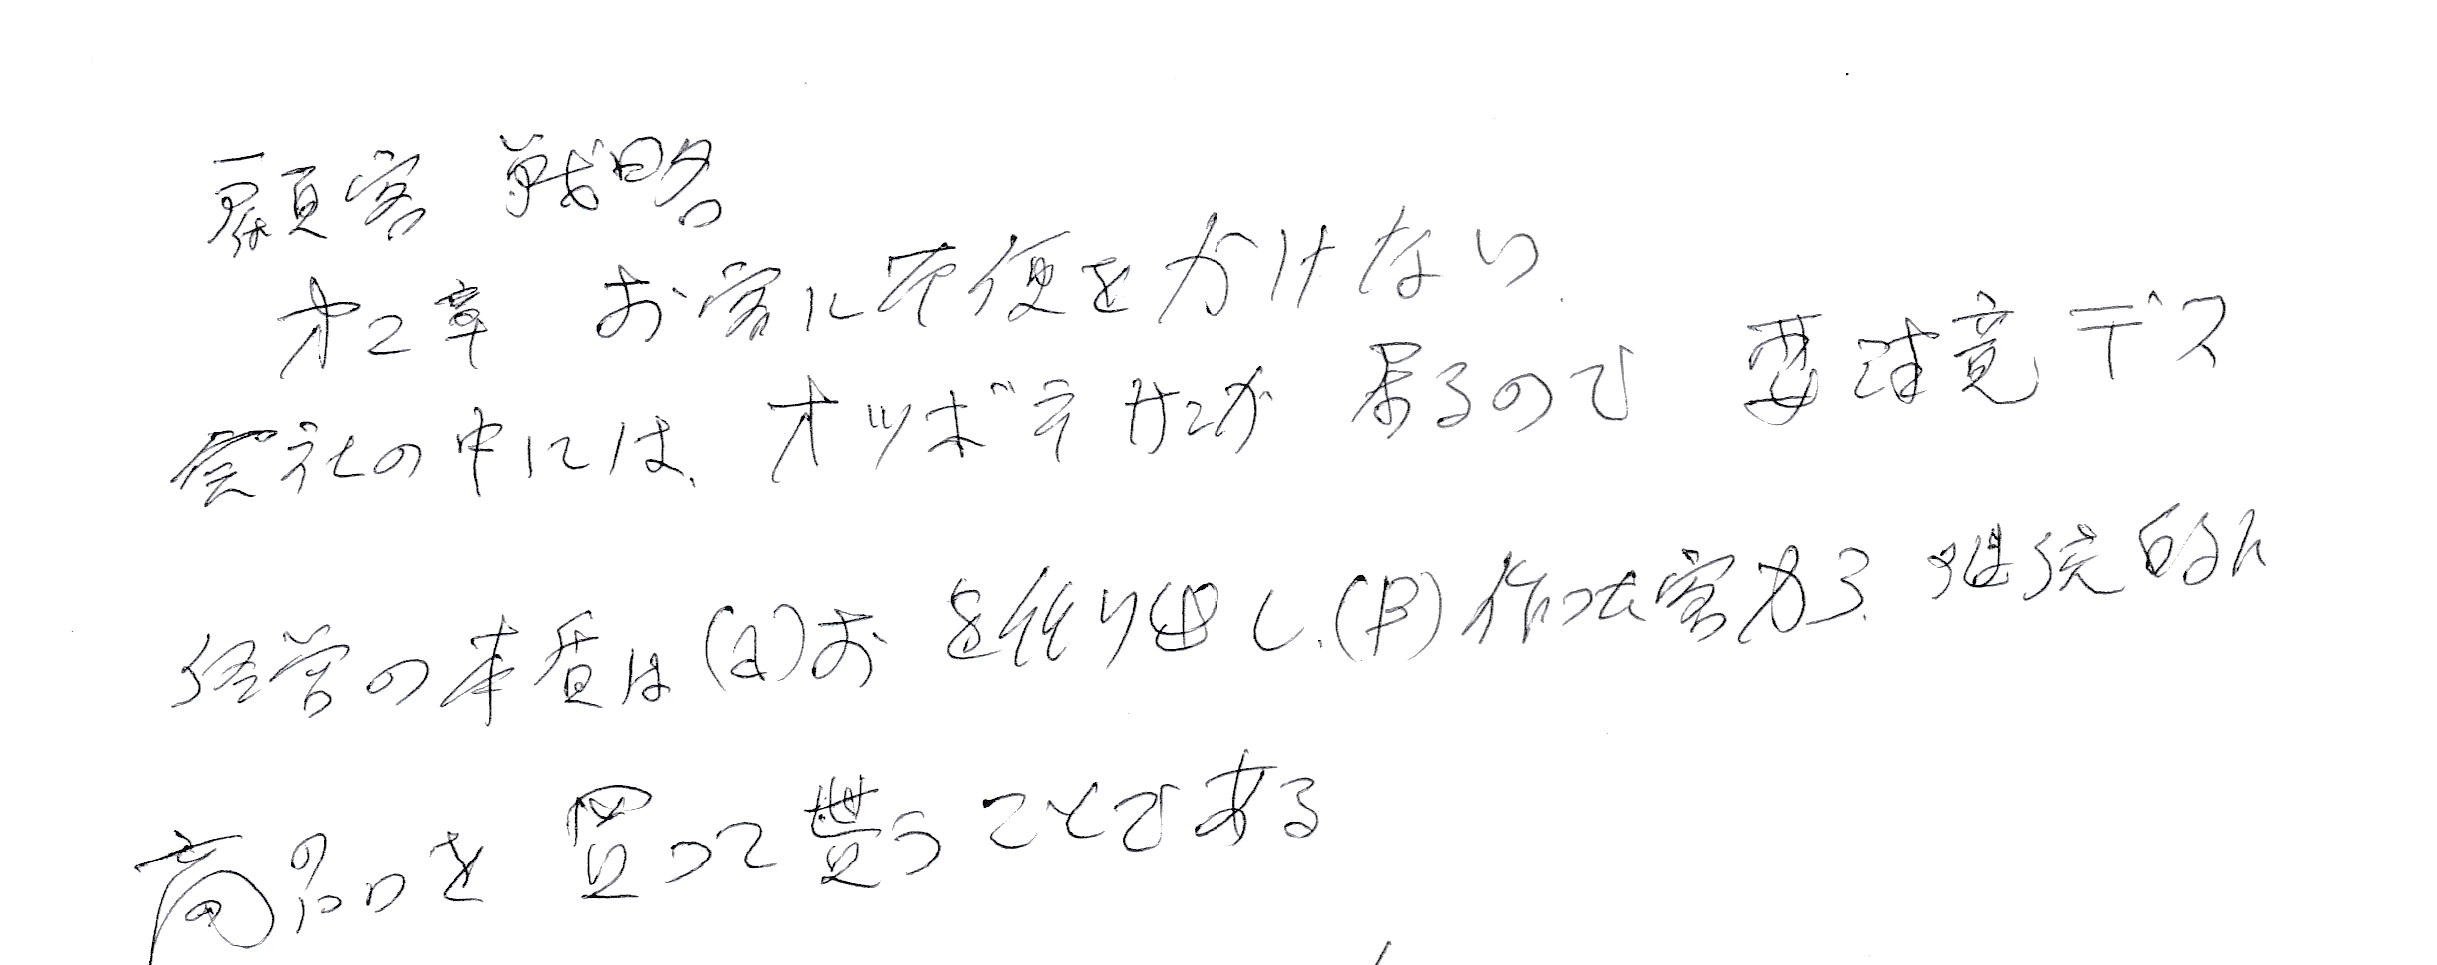 顧客戦略
才2章 お客に不便をかけない
会社の中には、オツボネサンが居るので 要注意デス
経営の本質は(a)お を作り出し、(β)作った客から、継続的に
商品を買って貰うことである